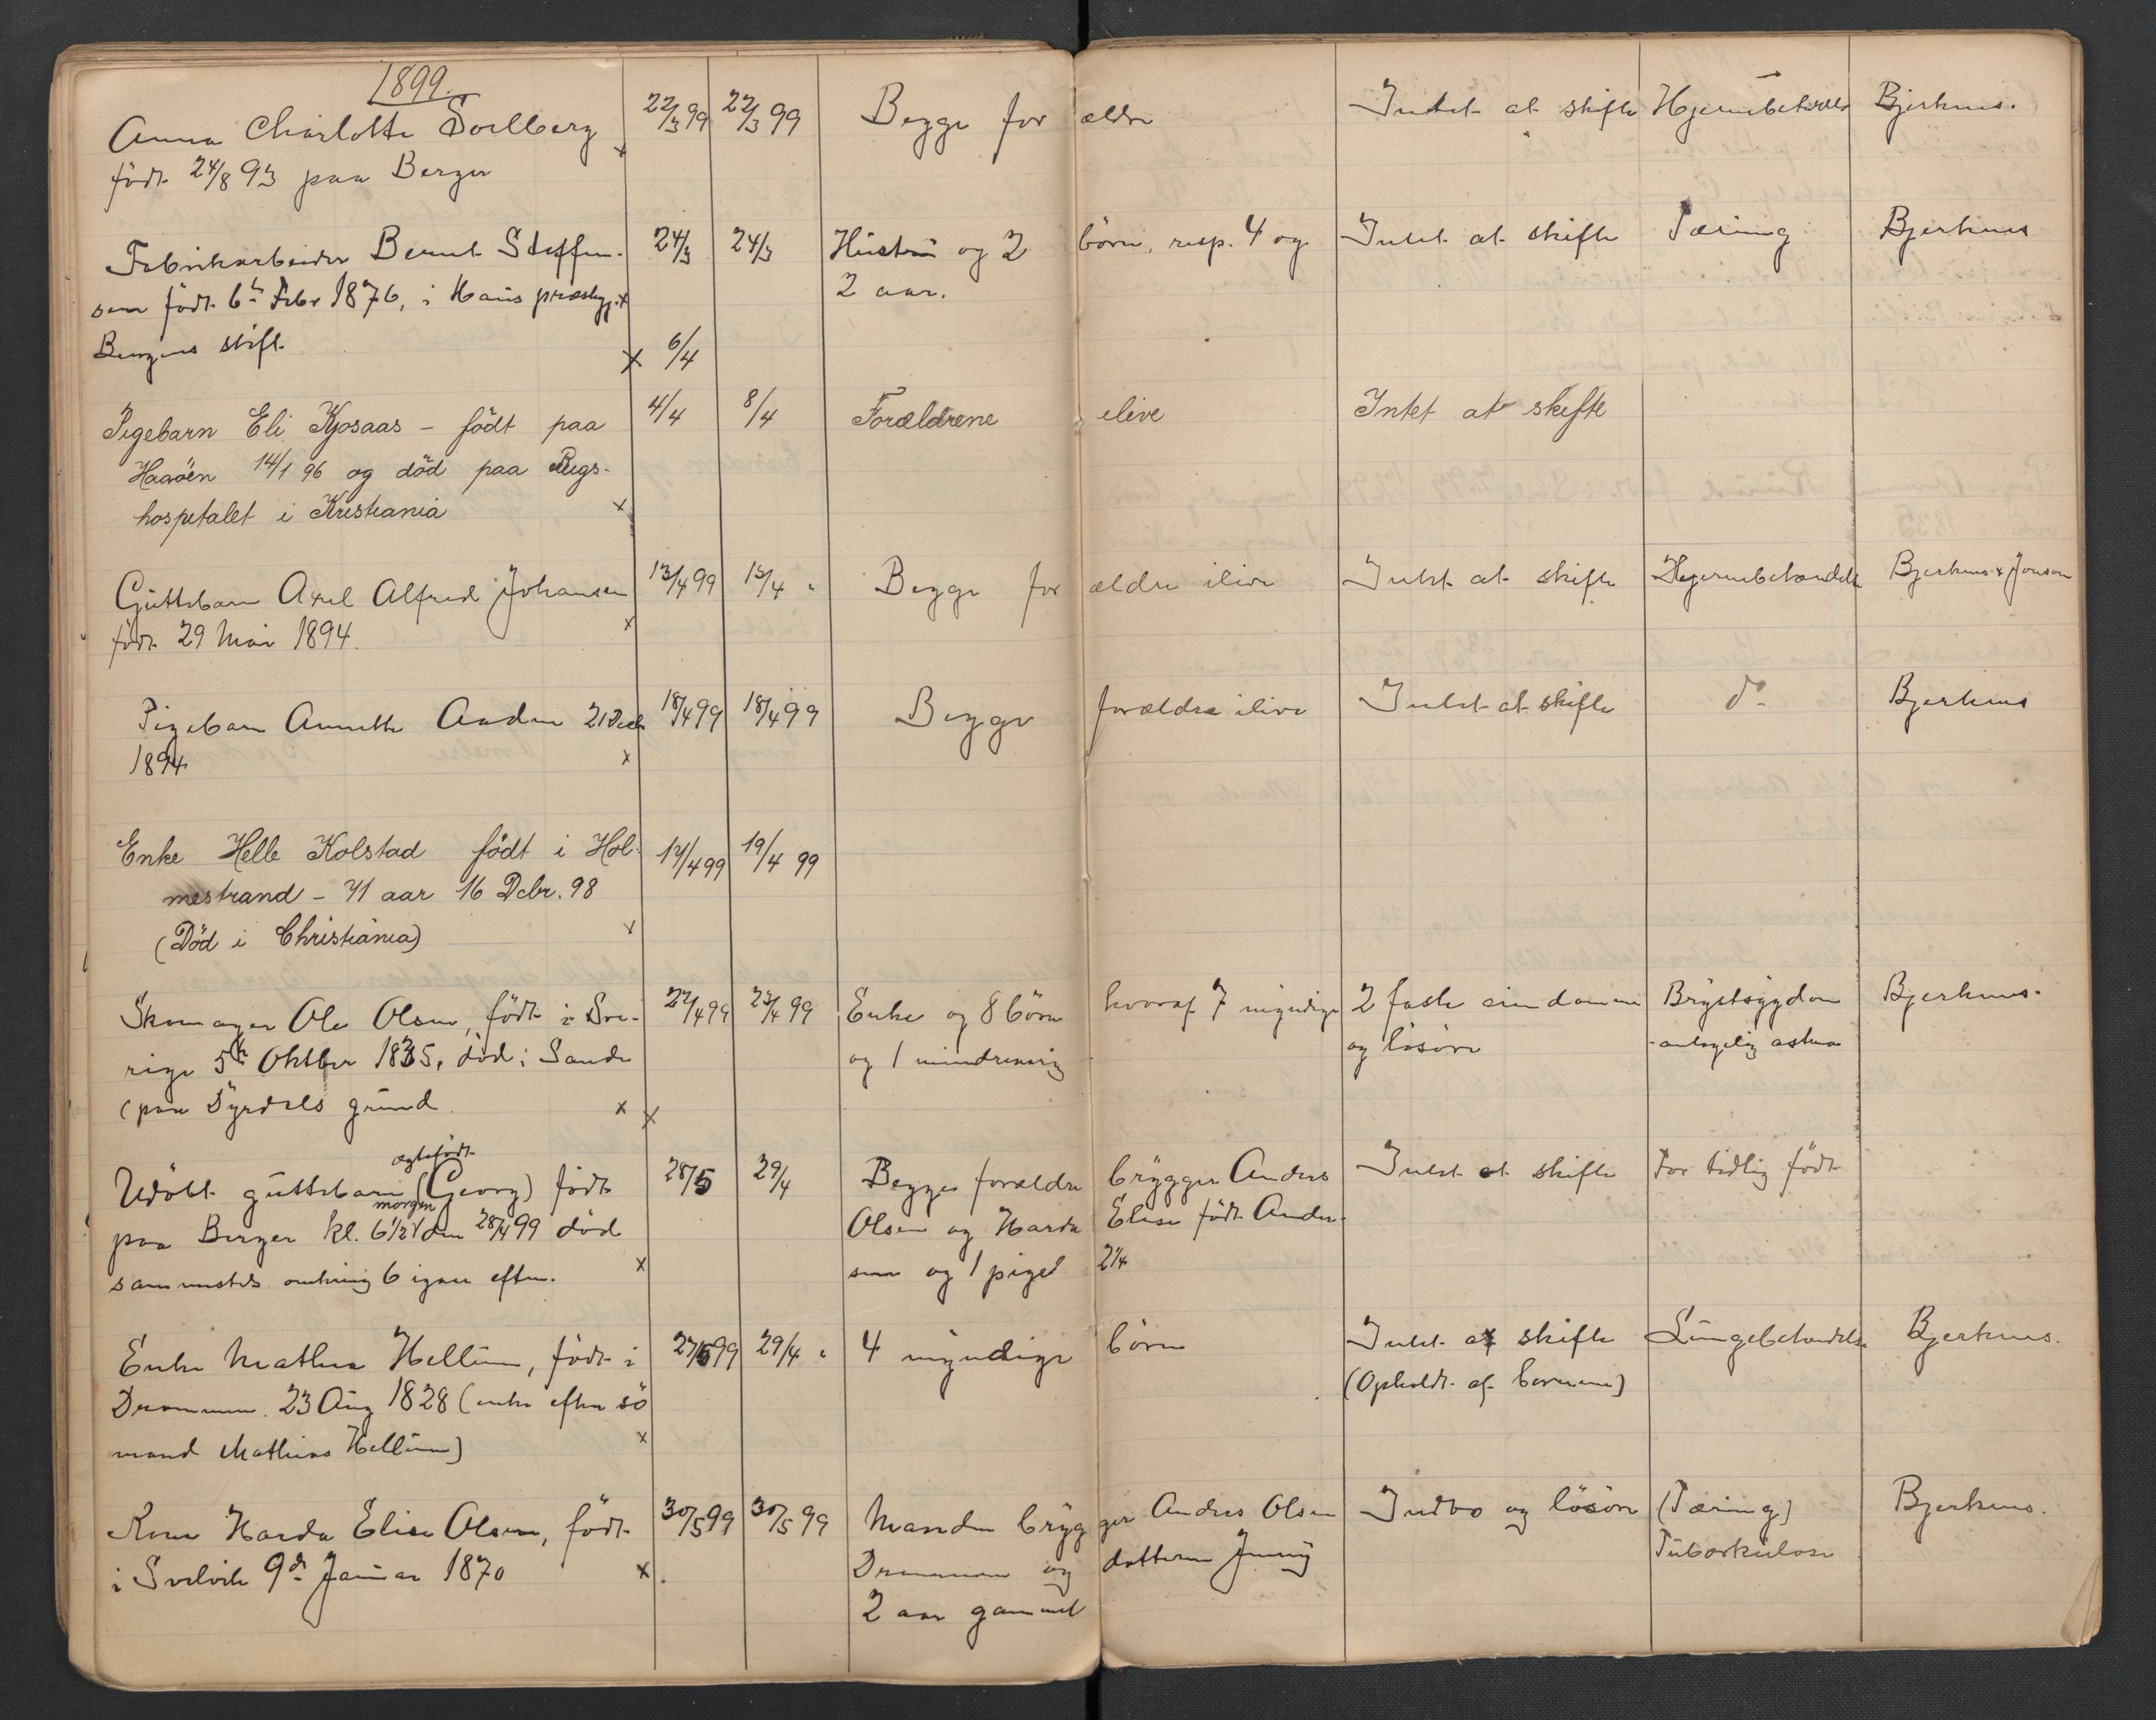 1899.
Anna Charlotte Soelberg 22/3 99 22/3 99 Begge forældre Intet at skifte Bjerknes.
födt 24/8 93 paa Berger x
Fabrikarbeider Bernt Steffen- 24/3 24/3 Hustru og 2 börn, resp. 4 og Intet at skifte Tæring Bjerknes
sen födt 6te Febr 1876, i Haus præstegj. x 2 aar.
Bergens stift x 6/4
Pigebarn Eli Kjosaas - födt paa 4/4 8/4 Forældrene ilive Intet at skifte
Haaöen 14/1 96 og död paa Rigs-
hospitalet i Kristiania x
Guttebarn Axel Alfred Johansen 13/4 99 13/4 " Begge forældre ilive Intet at skifte Hjernebetændelse Bjerknes & Jonson
födt 29 Mai 1894. x
Pigebarn Annette Aaden 21 Decbr 18/4 99 18/4 99 Begge forældre ilive Intet at skifte do Bjerknes
1894 x
Enke Helle Kolstad födt i Hol- 17/4 99 19/4 99
mestrand - 71 aar 16 Debr. 98
(Död i Christiania) x
Skomager Ole Olsen, födt i Sve- 22/4 99 23/4 99 Enke og 8 börn hvoraf 7 myndige 2 faste eiendomme Brystsygdom Bjerknes.
rige 5te Oktber 1835, död i Sande og 1 mindreaarig og lösöre - antagelig astma
(paa Dyrdals grund x x
ægtefödt
Udöbt guttebarn (Georg) födt 28/5 29/4 Begge forældre brygger Anders Intet at skifte For tidlig födt
morgen
paa Berger kl. 6 1/2 den 28/4 99 död Olsen og Harda Elise födt Ander-
sammesteds omkring 6 igaar efterm. x sen og 1 pige 2 1/4
Enke Mathea Hellum, födt i 27/5 99 29/4 " 4 myndige börn Intet at skifte Lungebetændelse Bjerknes.
Drammen 23 Aug 1828 (enke efter sö (Opholdt af börnene)
mand Mathias Hellum) x
Kone Harda Elise Olsen, födt 30/5 99 30/5 99 Manden brygger Anders Olsen Indbo og lösöre (Tæring) Bjerknes.
i Svelvik 9de Januar 1870 x Drammen og datteren Jenny Tuberkulose
2 aar gammel